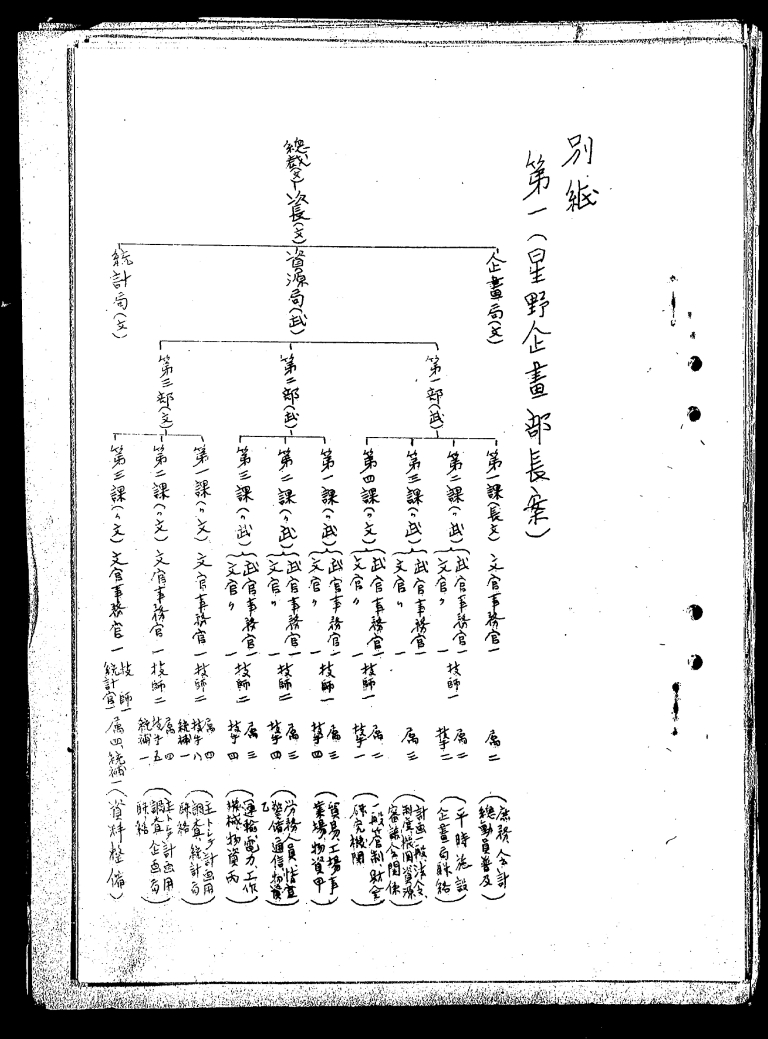 別紙
第一(星野企畫部長案)
總裁(文)
次長(文)
企畫局(文)
資源局(武)
統計局(文)
第一部(武)
第二部(武)
第三部(文)
第一課(長文) 文官事務官一 属二 (庶務、会計 總動員普及)
第二課(〃武) 武官事務官一 文官〃 技師一 属二 技手二 (平時施設 企畫局聯絡)
第三課(〃武) 武官事務官一 文官〃 属三 (計画一般法令、制度機関資源 審議会関係)
第四課(〃文) 武官事務官一 文官〃 技師一 属二 技手一 (一般管制、財金 研究機関)
第一課(〃武) 武官事務官一 文官〃 技師一 属三 技手四 (貿易工場事業場物資甲)
第二課(〃武) 武官事務官一 文官〃 技師二 属三 技手四 (労務人員情宣 警備通信物資乙)
第三課(〃武) 武官事務官一 文官〃 技師二 属三 技手四 (運輸、電力、工作 機械物資丙)
第一課(〃文) 文官事務官一 技師二 属四 技手八 統補一 (主トシテ計画用調査 統計局聯絡)
第二課(〃文) 文官事務官一 技師二 属四 技手五 統補一 (主トシテ計画用調査 企画局聯絡)
第三課(〃文) 文官事務官一 技師一 統計官一 属四 統補一 (資料整備)